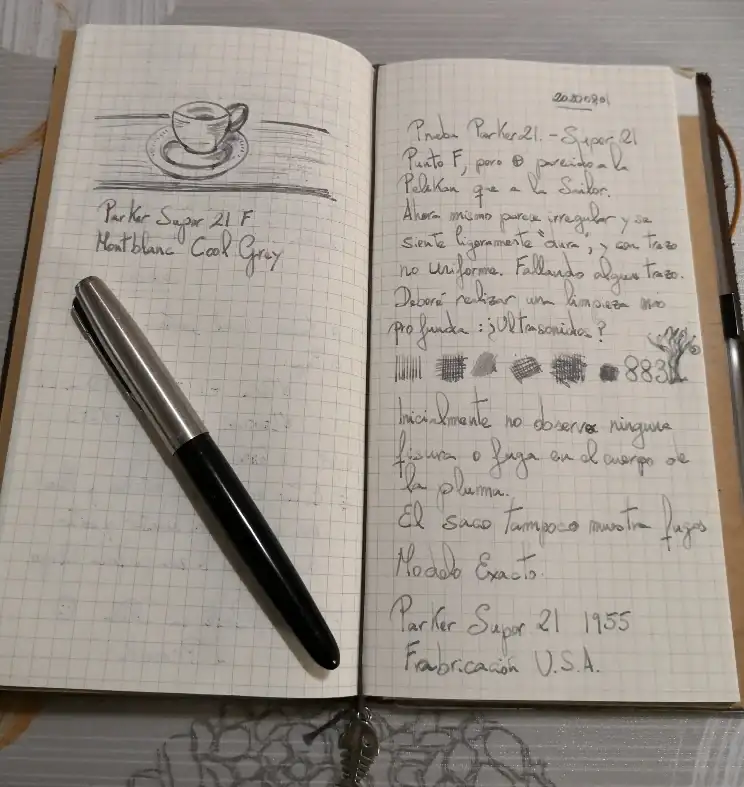 Parker Super 21 F
Montblanc Cool Grey
20200801
Prueba Parker 21. - Super 21
Punto F, pero parecido a la
Pelikan que a la Sailor.
Ahora mismo parece irregular y se
siente ligeramente "dura", y con trazo
no uniforme. Fallando algun trazo.
Deberé realizar una limpieza mas
profunda: ¿Ultrasonidos?
883
Inicialmente no observo ninguna
fisura o fuga en el cuerpo de
la pluma.
El saco tampoco muestra fugas
Modelo Exacto.
Parker Super 21 1955
Fabricación U.S.A.